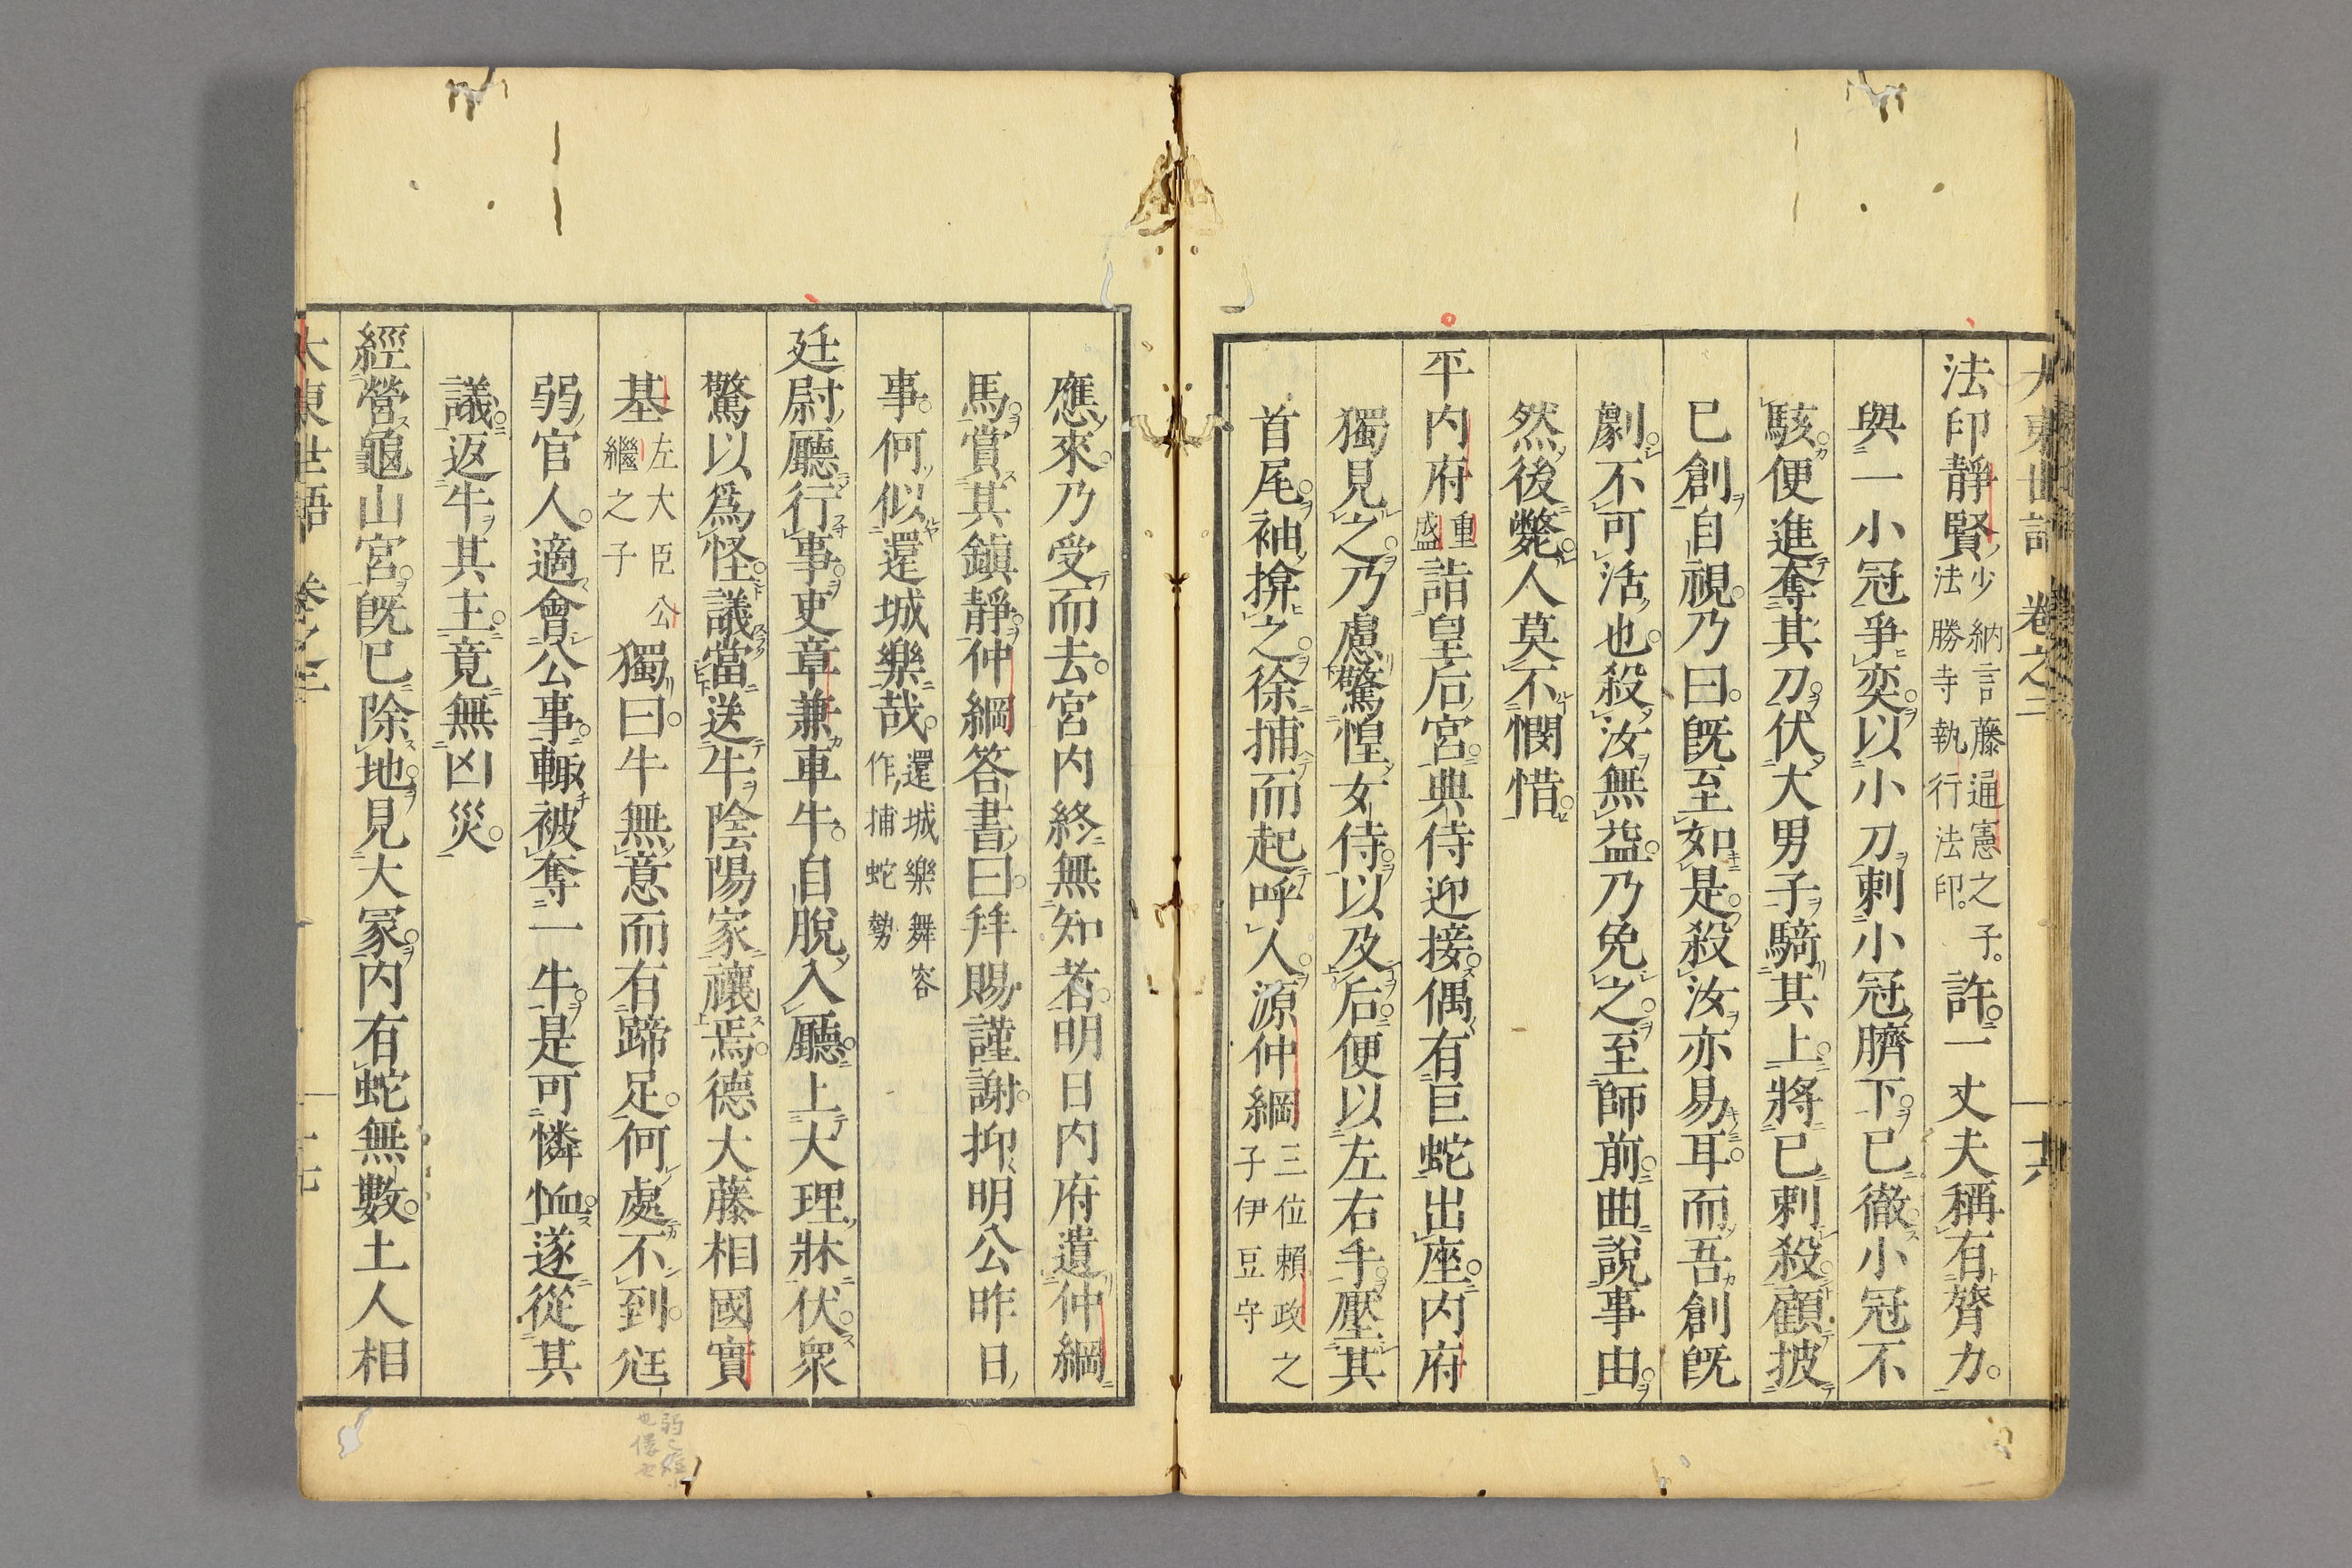 大東世語 卷之二 十六
法印靜賢少納言藤通憲之子。法勝寺執行法印。許一丈夫稱有膂力。
與一小冠爭奕以小刀刺小冠臍下已徹小冠不
駭便進奪其刀伏大男子騎其上將已刺殺顧披
已創自視乃曰既至如是殺汝亦易耳而吾創既
劇不可活也殺汝無益乃免之至師前曲說事由
然後斃人莫不憫惜
平內府重盛詣皇后宮典侍迎接偶有巨蛇出座內府
獨見之乃慮驚惶女侍以及后便以左右手壓其
首尾袖揜之徐捕而起呼人源仲綱三位賴政之子伊豆守
應來乃受而去宮內終無知者明日內府遺仲綱
馬賞其鎮靜仲綱答書曰拜賜謹謝抑明公昨日
事何似還城樂哉還城樂舞容作捕蛇勢
廷尉廳行事吏章兼車牛自脫入廳上大理牀伏眾
驚以爲怪議當送牛陰陽家禳焉德大藤相國實
基左大臣公繼之子獨曰牛無意而有蹄足何處不到尪
弱官人適會公事輙被奪一牛是可憐恤遂從其
議返牛其主竟無凶災
經營龜山宮既已除地見大冢內有蛇無數土人相
大東世語 卷之二 十七
弱
也